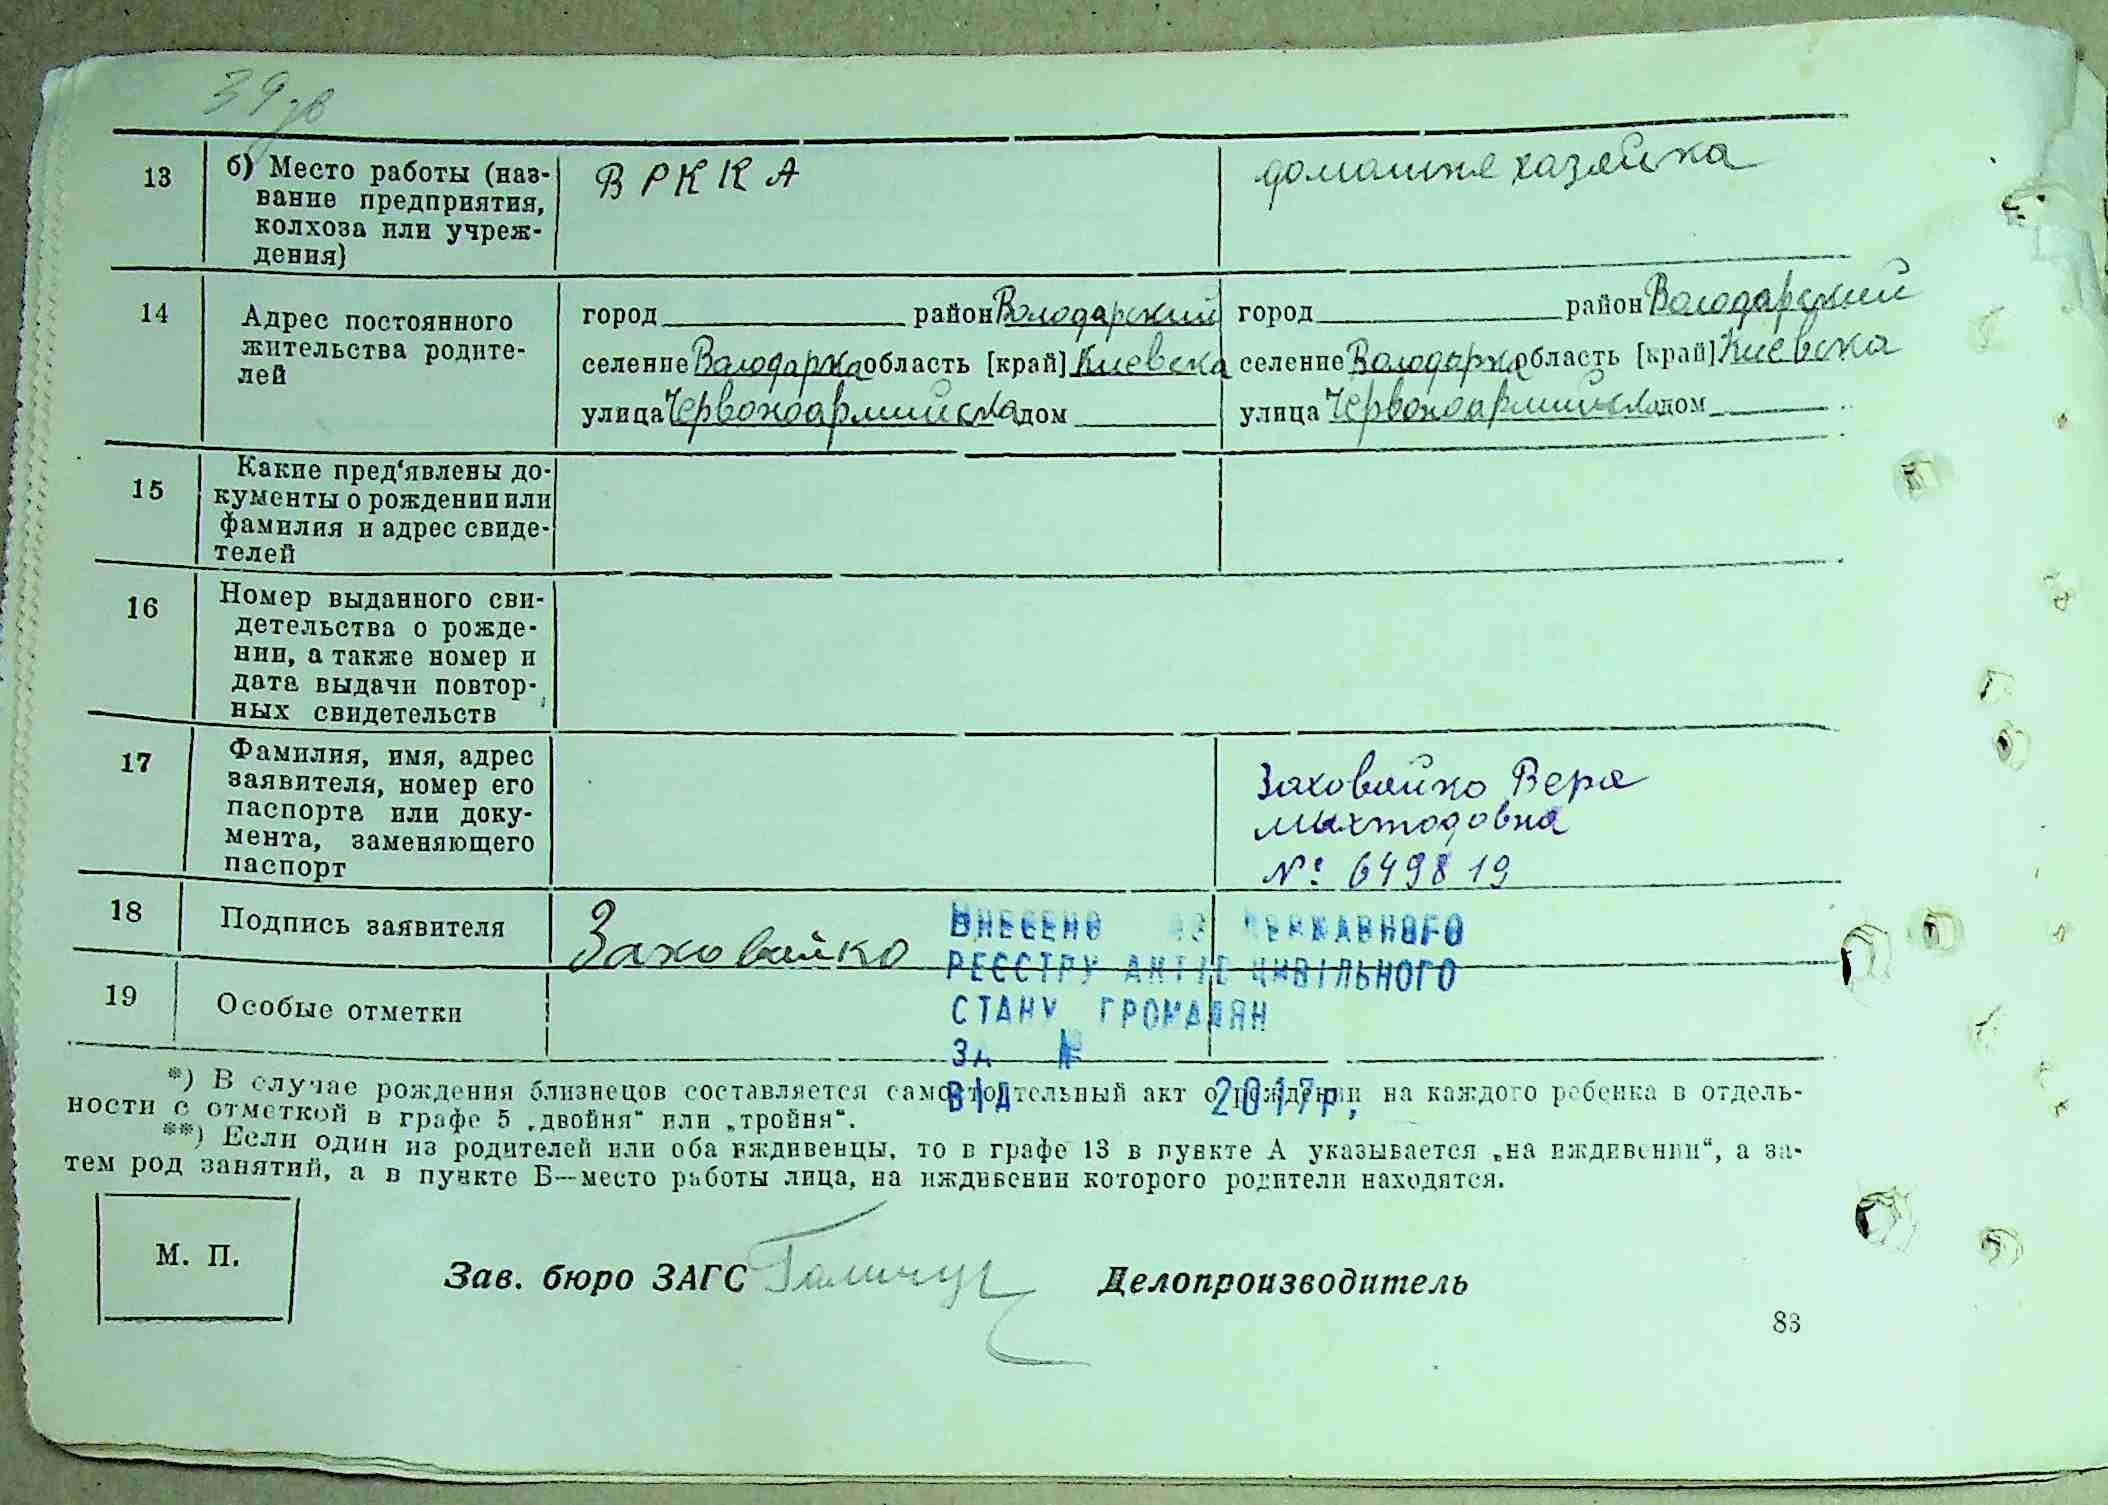 39 зв
13
б) Место работы (наз-
вание предприятия,
колхоза или учреж-
дения)
ВРККА
домашня хазяйка
14
Адрес постоянного
жительства родите-
лей
город район Володарский
селение Володарка область [край] Киевска
улица Червоноармийска дом
город район Володарский
селение Володарка область [край] Киевска
улица Червоноармийска дом
15
Какие пред'явлены до-
кументы о рождении или
фамилия и адрес свиде-
телей
16
Номер выданного сви-
детельства о рожде-
нии, а также номер и
дата выдачи повтор-
ных свидетельств
17
Фамилия, имя, адрес
заявителя, номер его
паспорта или доку-
мента, заменяющего
паспорт
Заховайко Вера
№ 649819
18
Подпись заявителя
Заховайко
19
Особые отметки
ВНЕСЕНО ДО ДЕРЖАВНОГО
РЕЄСТРУ АКТІВ ЦИВІЛЬНОГО
СТАНУ ГРОМАДЯН
ЗА №
ВІД 2017р,
*) В случае рождения близнецов составляется самостоятельный акт о рождении на каждого ребенка в отдель-
ности с отметкой в графе 5 „двойня“ или „тройня“.
**) Если один из родителей или оба иждивенцы, то в графе 13 в пункте А указывается „на иждивении“, а за-
тем род занятий, а в пункте Б—место работы лица, на иждивении которого родители находятся.
М. П.
Зав. бюро ЗАГС
Делопроизводитель
83